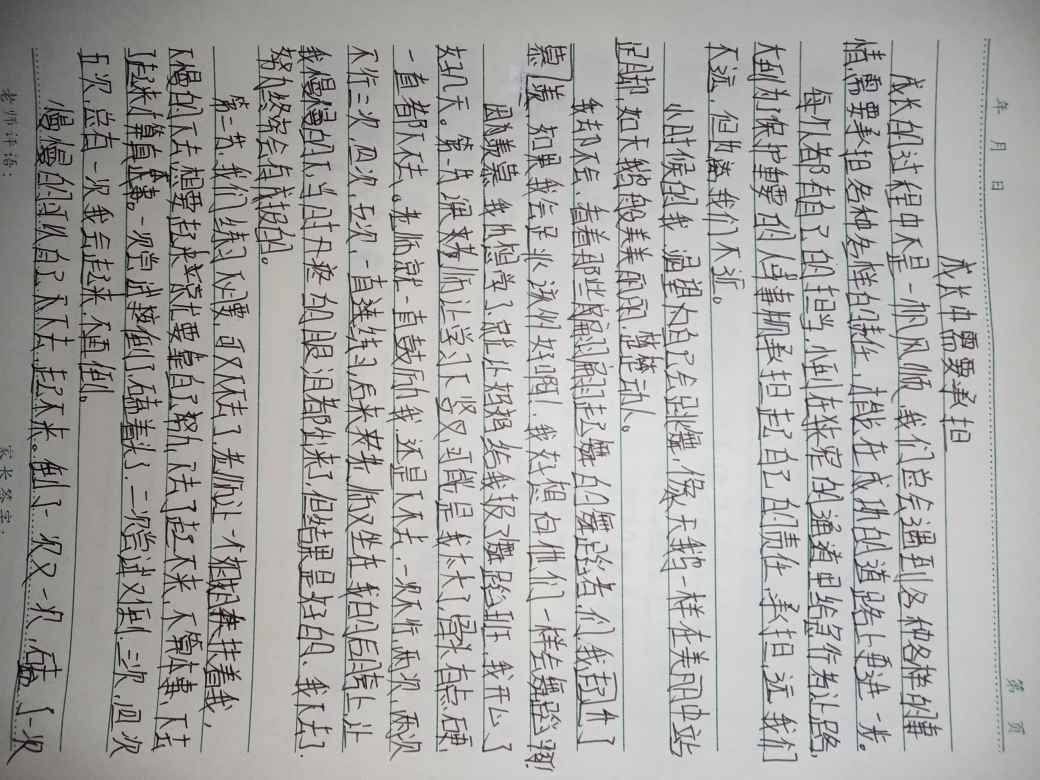 年 月 日 第 页
成长中需要承担
成长的过程中不是一帆风顺,我们总会遇到各种各样的事
情,需要承担各种各样的责任,才能在成功的道路上更进一步。
每个人都有自己的担当,小到在狭窄的通道里给急行者让路,
大到为了保护重要的人或事承担起了自己的责任,承担,远我们
不远,但离我们不近。
小时候的我,渴望自己会跳舞,像天鹅一样在美丽中站
足脚,如天鹅般美美丽丽,楚楚动人。
我却不后,看着那些翩翩起舞的舞蹈者们,我起了
慕,如果我会足业该们好啊!我好想向他们一样去舞蹈翔!
因羡慕,我也想学了,就让妈妈给我报了舞蹈班,我开心了
好几天。第一节课,老师让学习下竖叉,可能是我太大了,骨头有点硬,
一直都下不去。老师就一直鼓励我,还是下不去,一次不行两次,两次
不行三次,四次,五次,一直连练习,后来老师又坐在我的后跨上,让
我慢慢的下,当时疼的眼泪都出来了,但结果是好的,我下去了
努力终究会有成报的。
第二节,我们练习下腰,可又下不去了,老师让一个姐姐扶着我,
慢慢的下去,想要起来就要靠自己努力,下去了起不来,不算本事,下去
了起来才算真本事。一次尝试摔倒了,磕着头了,二次尝试又摔倒,三次,四次
五次,总有一次我会起来,不在倒。
慢慢的可以自己下下去,起不来。倒了一次又一次,磕了一次
老师评语: 家长签字: